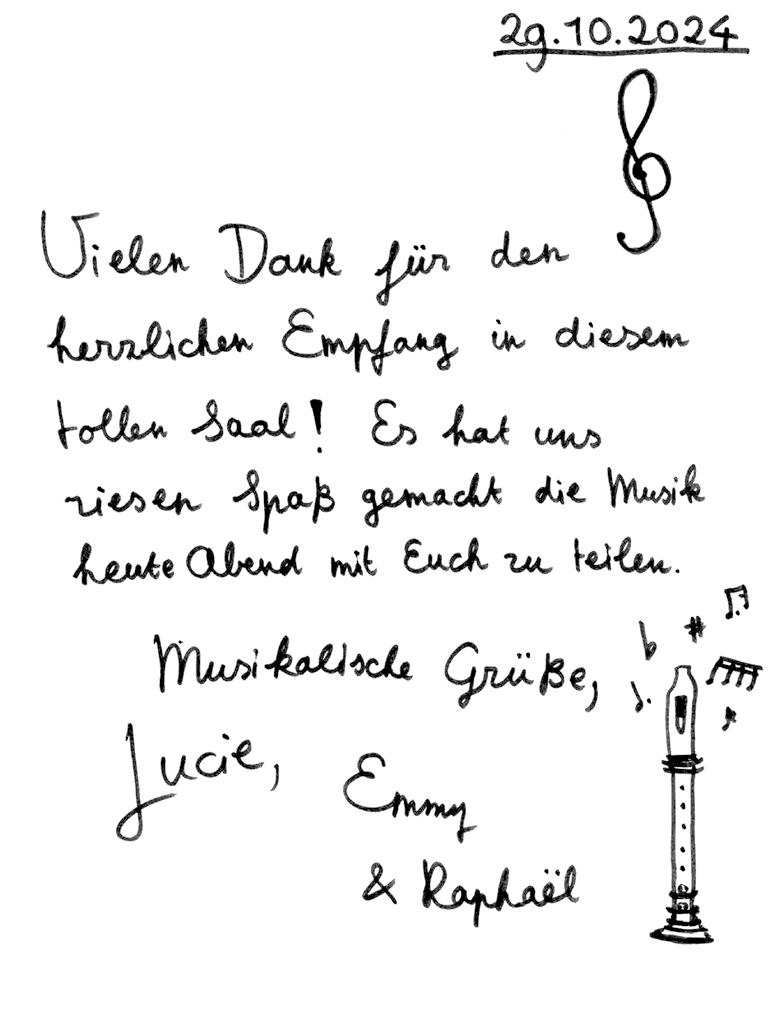 29.10.2024
Vielen Dank für den
herzlichen Empfang in diesem
tollen Saal! Es hat uns
riesen Spaß gemacht die Musik
heute Abend mit Euch zu teilen.
Musikalische Grüße,
Lucie,
Emmy
& Raphaël